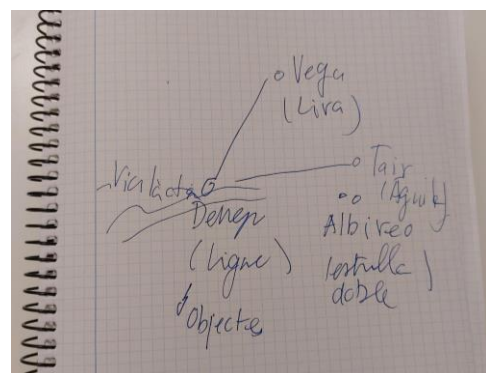 Vega
(Lira)
Via làctea
Tair
(Aguila)
Denep
(Cigne)
Albireo
(estrella
doble)
Objectes